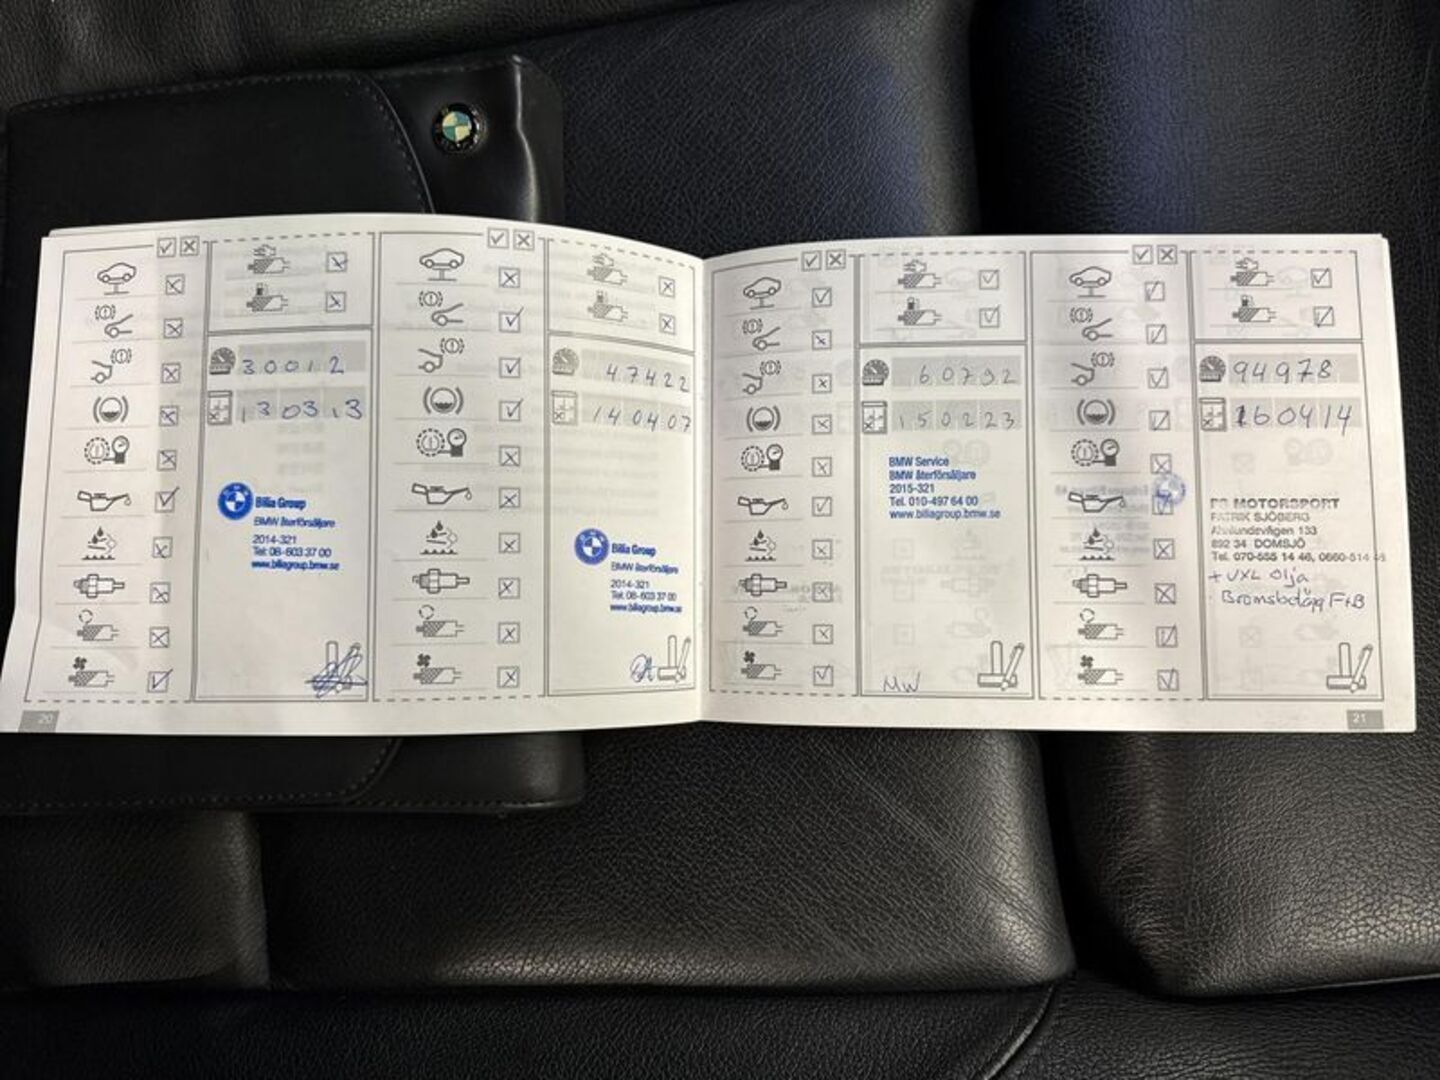 30012
130313
Bilia Group
BMW återförsäljare
2014-321
Tel: 08-603 37 00
www.biliagroup.bmw.se
47422
140407
Bilia Group
BMW återförsäljare
2014-321
Tel: 08-603 37 00
www.biliagroup.bmw.se
20
60792
150223
BMW Service
BMW återförsäljare
2015-321
Tel. 010-497 64 00
www.biliagroup.bmw.se
MW
94978
160414
PS MOTORSPORT
PATRIK SJÖBERG
892 34 DOMSJÖ
Tel. 070-555 14 46, 0660-514 46
+ VXL Olja
Bromsbelägg F+B
21